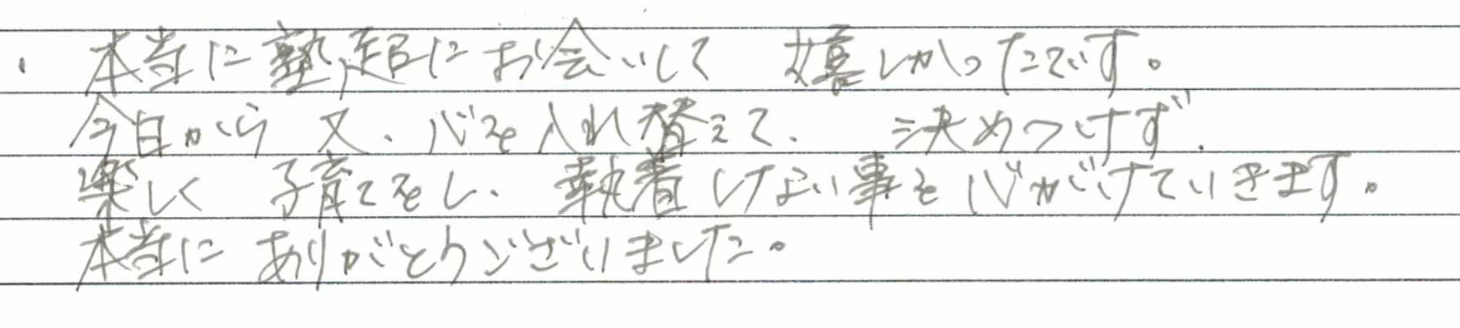 ・本当に塾超にお会いして 嬉しかったです。
今日から 又、心を入れ替えて、 決めつけず、
楽しく 子育てをし、執着しない事を心がけていきます。
本当に ありがとうございました。